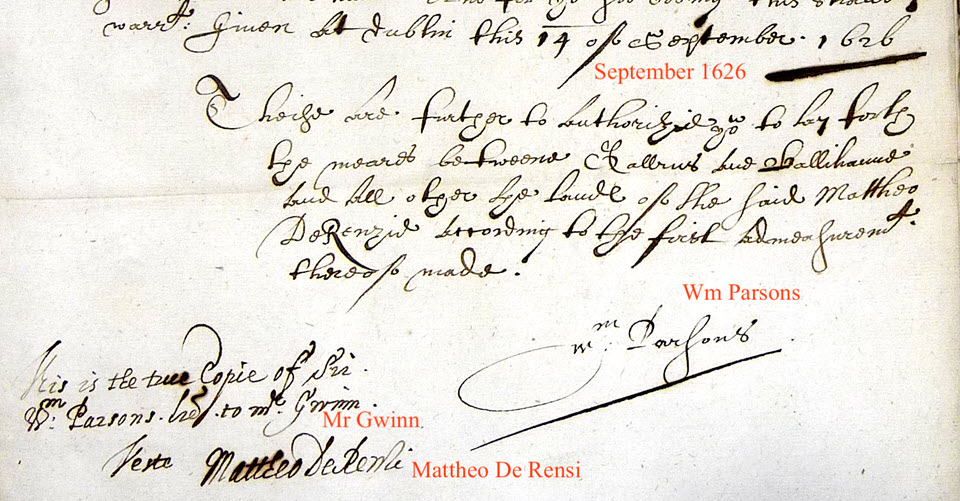 warrt: Given at Dublin this 14 of September. 1626
September 1626
Theise are further to authorize yo to lay forth
the meares betweene Gallrus and Ballihanne
and all other the lands of the said Mattheo
DeRenzie according to the first admeasuremt.
thereof made.
Wm Parsons
Wm: Parsons
This is the true Copie of Sir.
Wm: Parsons. to mr. Gwinn.
Mr Gwinn
Teste Mattheo De Rensi
Mattheo De Rensi